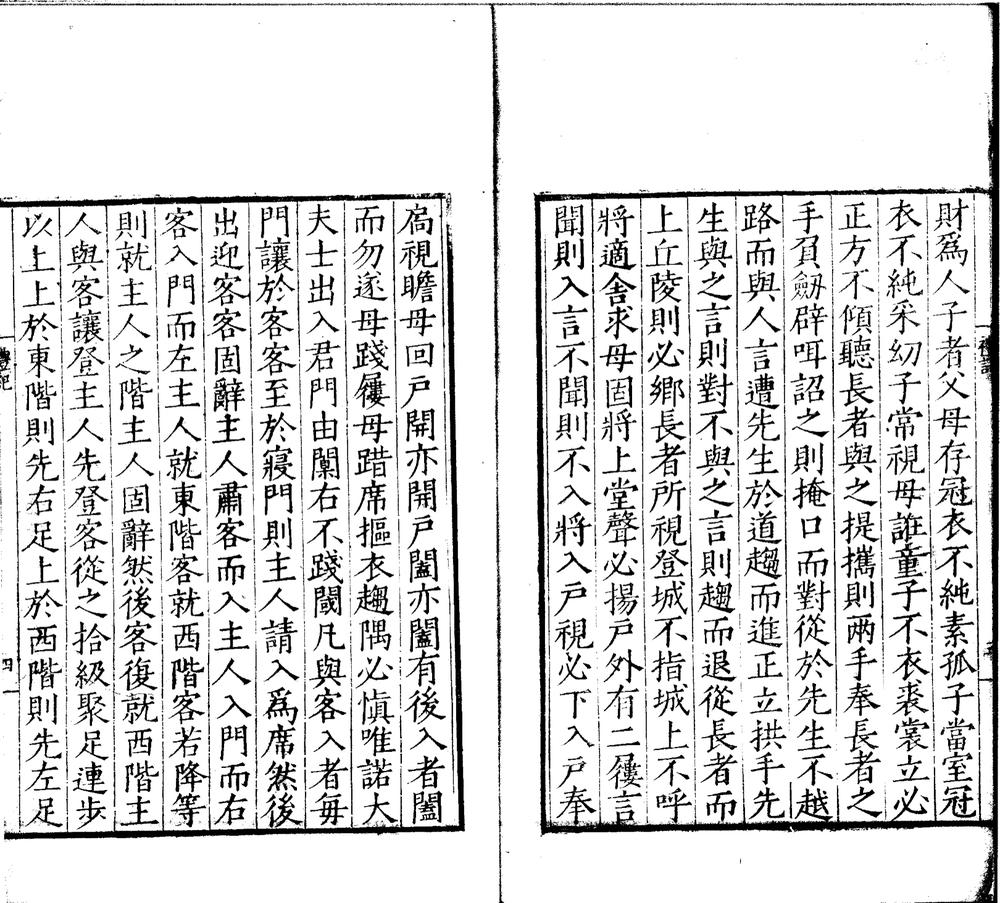 財爲人子者父母存冠衣不純素孤子當室冠
衣不純采幼子常視毋誑童子不衣裘裳立必
正方不傾聽長者與之提攜則兩手奉長者之
手負劒辟咡詔之則掩口而對從於先生不越
路而與人言遭先生於道趨而進正立拱手先
生與之言則對不與之言則趨而退從長者而
上丘陵則必鄉長者所視登城不指城上不呼
將適舍求毋固將上堂聲必揚戸外有二屨言
聞則入言不聞則不入將入戸視必下入戸奉
扃視瞻毋回戸開亦開戸闔亦闔有後入者闔
而勿遂毋踐屨毋踖席摳衣趨隅必愼唯諾大
夫士出入君門由闑右不踐閾凡與客入者每
門讓於客客至於寢門則主人請入爲席然後
出迎客客固辭主人肅客而入主人入門而右
客入門而左主人就東階客就西階客若降等
則就主人之階主人固辭然後客復就西階主
人與客讓登主人先登客從之拾級聚足連步
以上上於東階則先右足上於西階則先左足
禮記
四